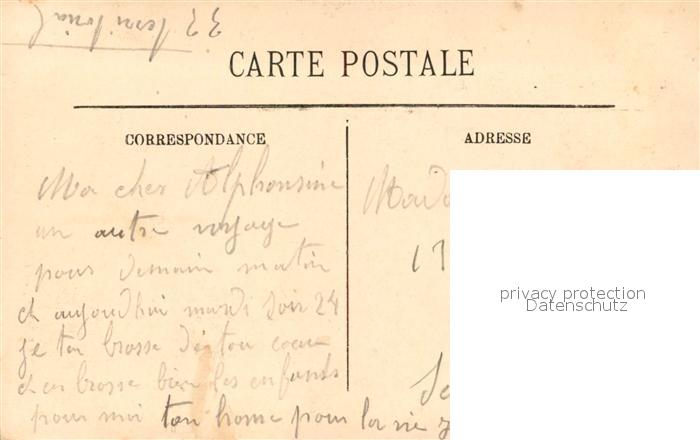 32 territorial
CARTE POSTALE
CORRESPONDANCE
ADRESSE
Ma cher Alphonsine
un autre voyage
pour demain matin
et aujourdhui mardi soir 24
je ten brasse de ton coeur
et en brasse bien les enfants
pour moi ton home pour la vie
Mada
17
privacy protection
Datenschutz